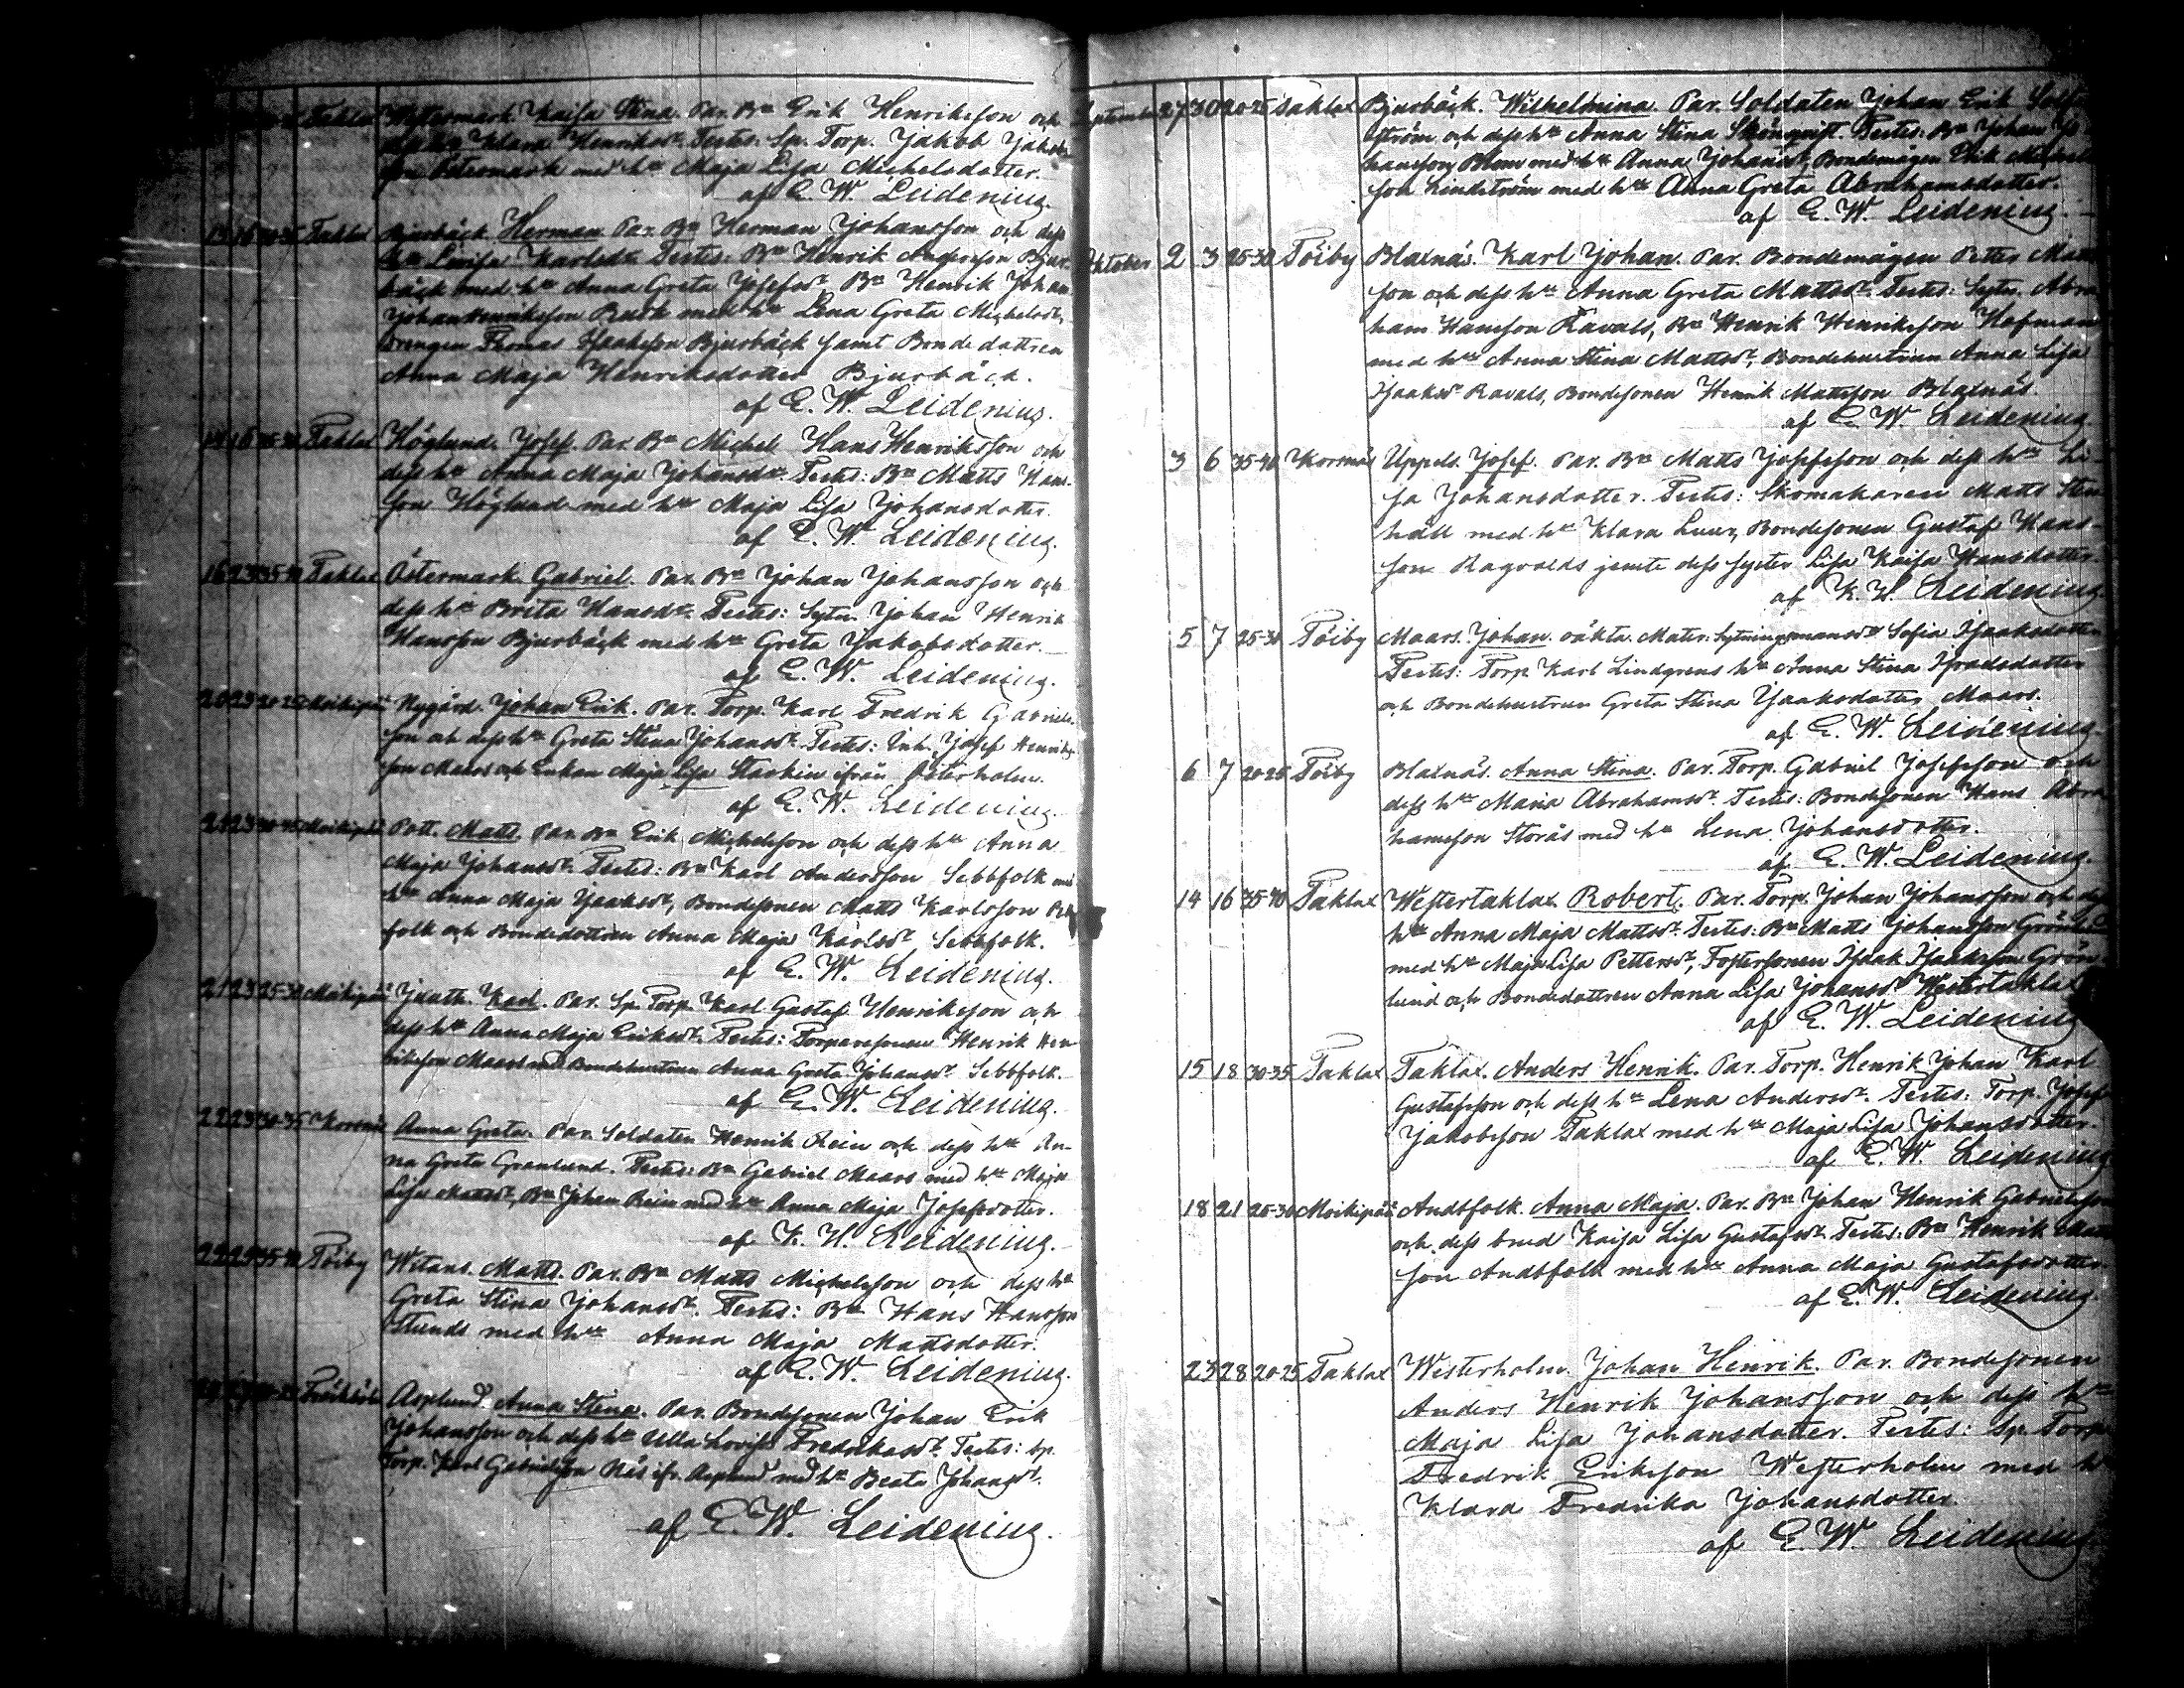 Taklax Westermark. Kaisa Stina. Par. Bn Erik Henriksson och
Klara Henriksdr. Testes: Sp. Torp. Jakob Jakobs
son Östermark med hu Maja Lisa Michelsdotter.
af E. W. Leidenius.
Taklax Bjurbäck. Herman. Par. Bn Herman Johansson och dess
hu Lovisa Karlsdr. Testes: Bn Henrik Andersson Bjur-
bäck med hu Anna Greta Josefsdr, Bn Henrik Johan
Johan Henriksson Buck med hu Lena Greta Michelsdr,
Drengen Thomas Isaksson Bjurbäck samt Bondedottren
Anna Maja Henriksdotter Bjurbäck.
af E. W. Leidenius.
14 16 Taklax Höglund. Josef. Par. Bn Michel Hans Henriksson och
dess hu Anna Maja Johansdr. Testes: Bn Matts Hans-
son Höglund med hu Maja Lisa Johansdotter.
af E. W. Leidenius.
16 23 35-40 Taklax Östermark. Gabriel. Par. Bn Johan Johansson och
dess hu Brita Hansdr. Testes: Sytn. Johan Henrik
Hansson Bjurbäck med hu Greta Jakobsdotter.
af E. W. Leidenius.
20 23 20-25 Moikipää Nygård. Johan Erik. Par. Torp. Karl Fredrik Gabriels-
son och dess hu Greta Stina Johansdr. Testes: Inh. Josef Henriks-
son Maars och Enkan Maja Lisa Starkin ifrån Österholm.
af E. W. Leidenius.
23 Moikipää Pott. Matts. Par. Bn Erik Michelsson och dess hu Anna
Maja Johansdr. Testes: Bn Karl Andersson Sebbfolk med
hu Anna Maja Isaksdr, Bondesonen Matts Karlsson
folk och Bondedottren Anna Maja Karlsdr Sebbfolk.
af E. W. Leidenius.
21 23 25-30 Moikipää Karl. Par. Sp. Torp. Karl Gustaf Henriksson och
dess hu Anna Maja Eriksdr. Testes: Torparesonen Henrik Hen-
riksson Maars med Bondehustrun Anna Greta Johansdr Sebbfolk.
af E. W. Leidenius.
22 23 30-35 Korsnäs Anna Greta. Par. Soldaten Henrik Rein och dess hu An-
na Greta Granlund. Testes: Bn Gabriel Maars med hu Maja
Lisa Mattsdr, Bn Johan Rein med hu Anna Maja Josefsdotter.
af K. H. Leidenius.
Töiby Witans. Matts. Par. Bn Matts Michelsson och dess hu
Greta Stina Johansdr. Testes: Bn Hans Hansson
Stunds med hu Anna Maja Mattsdotter.
af E. W. Leidenius.
Asplund. Anna Stina. Par. Bondesonen Johan Erik
Johansson och dess hu Ulla Lovisa Fredriksdr. Testes: Sp.
Torp. Karl Gabrielsson Näs ifr. Asplund med hu Beata Johansdr.
af E. W. Leidenius.
September 27 30 20-25 Taklax Bjurbäck. Wilhelmina. Par. Soldaten Johan Erik
ström och dess hu Anna Stina Skönqvist. Testes: Bn Johan Jo
hansson Blom med hu Anna Johansdr, Bondemågen Erik Michels
son Lindström med hu Anna Greta Abrahamsdotter.
af E. W. Leidenius.
Oktober 2 3 25-30 Töiby Blaxnäs. Karl Johan. Par. Bondemågen Petter Matts
son och dess hu Anna Greta Mattsdr. Testes: Sytn. Abra
ham Hansson Ravals, Bn Henrik Henriksson Hofman
med hu Anna Stina Mattsdr, Bondehustrun Anna Lisa
Isaksdr Ravals, Bondesonen Henrik Mattsson Blaxnäs.
af E. W. Leidenius.
3 6 35-40 Korsnäs Uppels. Josef. Par. Bn Matts Josefsson och dess hu Li-
sa Johansdotter. Testes: Skomakaren Matts Sten
håll med hu Klara Luur, Bondesonen Gustaf Hans-
son Ragvalds jemte dess syster Lisa Kaisa Hansdotter.
af K. H. Leidenius.
5 7 25-30 Töiby Maars. Johan. oäkta. Mater: Sytningsmansdr Sofia Isaksdotter
Testes: Torp. Karl Lindgrens hu Anna Stina Isaksdotter
och Bondehustrun Greta Stina Isaksdotter Maars.
af E. W. Leidenius.
6 7 20-25 Töiby Blaxnäs. Anna Stina. Par. Torp. Gabriel Josefsson och
dess hu Maria Abrahamsdr. Testes: Bondesonen Hans Abra
hamsson Storås med hu Lena Johansdotter.
af E. W. Leidenius.
14 16 35-40 Taklax Westertaklax. Robert. Par. Torp. Johan Johansson och dess
hu Anna Maja Mattsdr. Testes: Bn Matts Johansson Grönlund
med hu Maja Lisa Pettersdr, Fostersonen Isaak Isaksson Grön-
lund och Bondedottren Anna Lisa Johansdr Westertaklax
af E. W. Leidenius
15 18 30-35 Taklax Taklax. Anders Henrik. Par. Torp. Henrik Johan Karl
Gustafsson och dess hu Lena Andersdr. Testes: Torp. Josef
Jakobsson Taklax med hu Maja Lisa Johansdotter.
af E. W. Leidenius
18 21 25-30 Moikipää Andtfolk. Anna Maja. Par. Bn Johan Henrik Gabrielsson
och dess brud Kaisa Lisa Gustafsdr. Testes: Bn Henrik Matts
son Andtfolk med hu Anna Maja Gustafsdotter.
af E. W. Leidenius.
23 28 20-25 Taklax Westerholm. Johan Henrik. Par. Bondesonen
Anders Henrik Johansson och dess hu
Maja Lisa Johansdotter. Testes: Sp. Torp.
Fredrik Eriksson Westerholm med hu
Klara Fredrika Johansdotter.
af E. W. Leidenius.